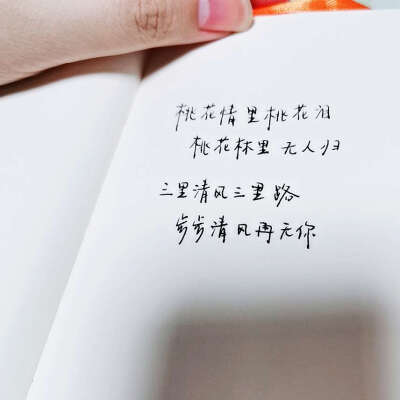 桃花情里桃花泪
桃花林里无人归
三里清风三里路
步步清风再无你